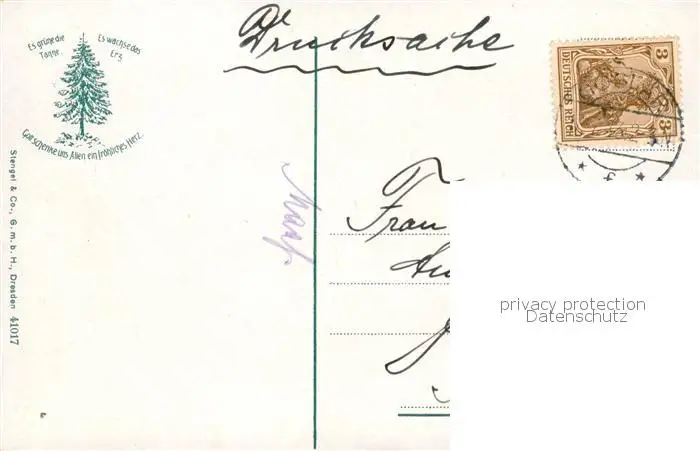 Drucksache
Es grüne die Tanne.
Es wachse das Erz
Gott schenke uns Allen ein fröhliches Herz.
3 3
DEUTSCHES REICH
Stengel & Co., G. m. b. H., Dresden 41017
Frau
privacy protection
Datenschutz